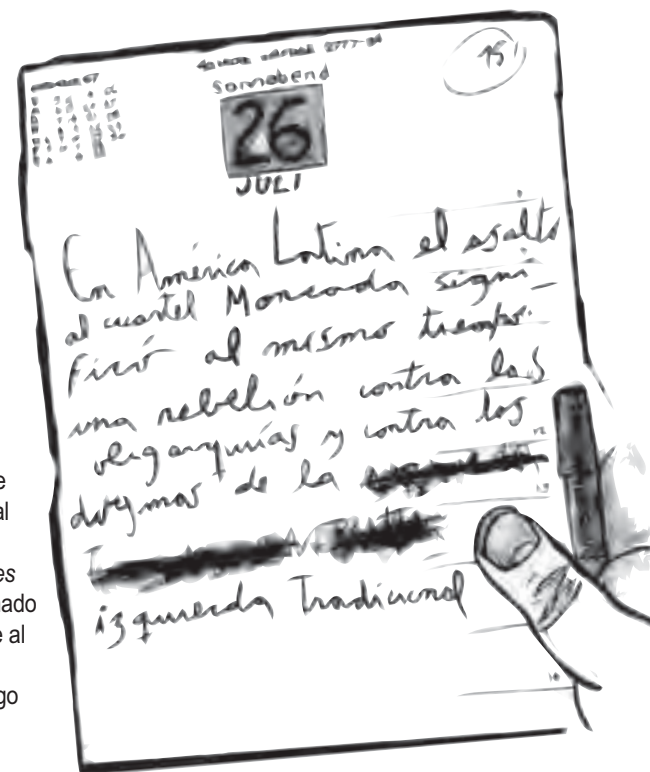 15
Sonnabend
26
JULI
En América Latina el asalto
al cuartel Moncada signi-
ficó al mismo tiempo
una rebelión contra las
oligarquías y contra los
dogmas de la
izquierda tradicional
e
al
es
ado
e al
go